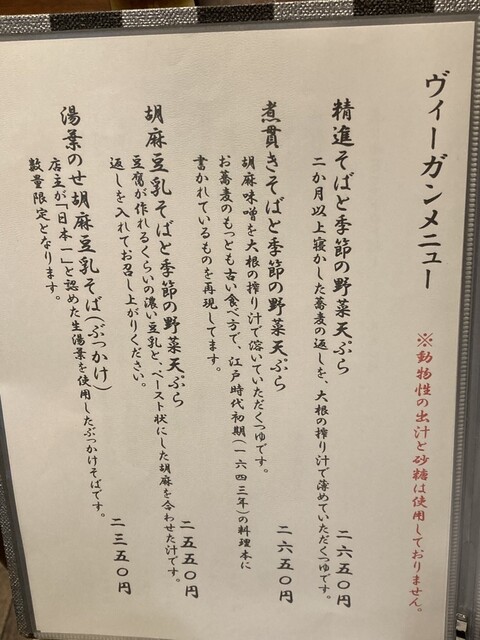 ヴィーガンメニュー
※動物性の出汁と砂糖は使用しておりません。
精進そばと季節の野菜天ぷら
二か月以上寝かした蕎麦の返しを、大根の搾り汁で薄めていただくつゆです。
二六五〇円
煮貫きそばと季節の野菜天ぷら
胡麻味噌を大根の搾り汁で溶いていただくつゆです。
お蕎麦のもっとも古い食べ方で、江戸時代初期(一六四三年)の料理本に
書かれているものを再現してます。
二六五〇円
胡麻豆乳そばと季節の野菜天ぷら
豆腐が作れるくらいの濃い豆乳と、ペースト状にした胡麻を合わせた汁です。
返しを入れてお召し上がりください。
二五五〇円
湯葉のせ胡麻豆乳そば(ぶっかけ)
店主が「日本一」と認めた生湯葉を使用したぶっかけそばです。
数量限定となります。
二三五〇円